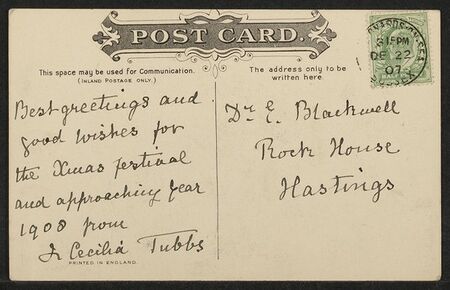 POST CARD.
This space may be used for Communication.
(INLAND POSTAGE ONLY.)
The address only to be
written here.
Best greetings and
good wishes for
the Xmas festival
and approaching Year
1908 from
Cecilia Tubbs
PRINTED IN ENGLAND.
Dr. E. Blackwell
Rock House
Hastings
PM
DE 22
07